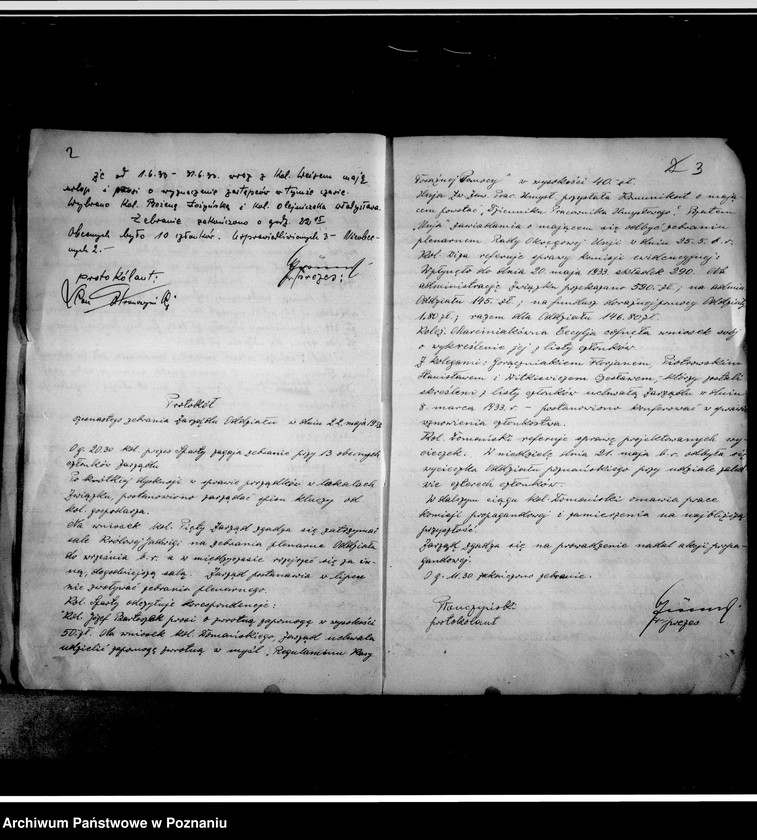 2
że od 1.6.33 - 31.6.33. wraz z kol. Weissem mają
urlop i prosi o wyznaczenie zastępców w tymże czasie.
Wybrano kol. Bożenę Łozińską i kol. Olejniczaka Władysława.
Zebranie zakończono o godz. 22
Obecnych było 10 członków. Usprawiedliwionych 3 - Nieobec-
nych 2. -
protokólant:
prezes:
Protokół
zebrania Zarządu Oddziału w dniu 22 maja 1933
O g. 20.30 kol. prezes Sparty zagaja zebranie przy 13 obecnych
członkach Zarządu
Po krótkiej dyskusji w sprawie porządków w lokalach
Związku, postanowiono zarządać spisu kluczy od
kol. gospodarza.
Na wniosek kol. Pięty Zarząd zgadza się zatrzymać
salę Królowej Jadwigi na zebrania plenarne Oddziału
do września b.r. a w międzyczasie rozejrzeć się za in-
ną, dogodniejszą salą. Zarząd postanawia w lipcu
nie zwoływać zebrania plenarnego.
Kol. Sparty odczytuje korespondencję:
Kol. Józef Bartoszak prosi o zwrotną zapomogę w wysokości
50 zł. Na wniosek kol. Domańskiego, zarząd uchwala
udzielić zapomogę zwrotną w myśl "Regulaminu Kasy
3
Doraźnej Pomocy" w wysokości 40.- zł.
Unja Zw. Zaw. Prac. Umysł. przysłała Komunikat o mają-
cem powstać "Dzienniku Pracownika Umysłowego". Pozatem
"Unja" zawiadamia o mającem się odbyć zebraniu
plenarnem Rady Okręgowej Unji w dniu 25.5. b.r.
Kol. Diga referuje sprawy komisji ewidencyjnej:
Wpłynęło do dnia 20 maja 1933. składek 290. Na
administrację Związku przekazano 590.- zł.; na admin.
Oddziału 145.- zł.; na fundusz doraźnej pomocy Oddziału
1,80 zł.; razem dla Oddziału 146.80 zł.
Kolez. Marciniakówna Cecylja cofnęła wniosek swój
o wykreślenie jej z listy członków.
Z kolegami: Gracz­niakiem Florjanem, Piotrowskim
Stanisławem i Witkiewiczem Czesławem, którzy zostali
skreśleni z listy członków uchwałą Zarządu w dniu
8. marca 1933. r. - postanowiono konferować w sprawie
wznowienia członkostwa.
Kol. Domański referuje sprawę projektowanych wy-
cieczek. W niedzielę dnia 21. maja b.r. odbyła się
wycieczka Oddziału poznańskiego przy udziale zaled-
wie czterech członków.
W dalszym ciągu kol. Domański omawia prace
komisji propagandowej i zamierzenia na najbliższą
przyszłość.
Zarząd zgadza się na prowadzenie nadal akcji propa-
gandowej.
O g. 11.30 zakończono zebranie.
protokólant
prezes
Archiwum Państwowe w Poznaniu